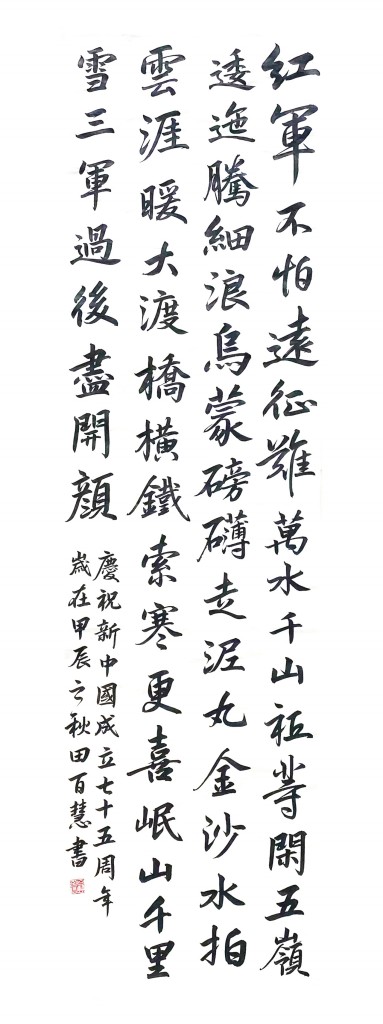 紅軍不怕遠征難萬水千山祇等閑五嶺
逶迤騰細浪烏蒙磅礴走泥丸金沙水拍
雲涯暖大渡橋橫鐵索寒更喜岷山千里
雪三軍過後盡開顏
慶祝新中國成立七十五周年
歲在甲辰之秋田百慧書